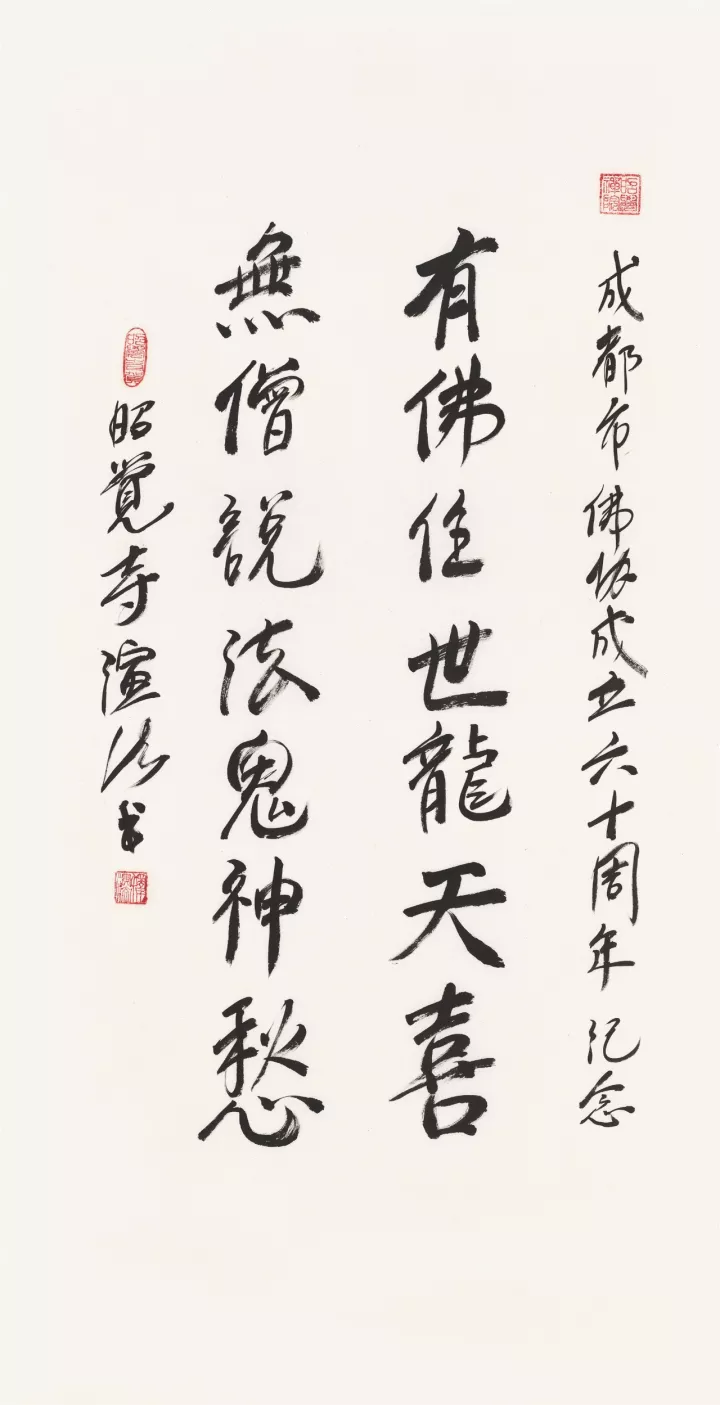 成都市佛协成立六十周年纪念
有佛住世龍天喜
無僧説法鬼神愁
昭覺寺演法书